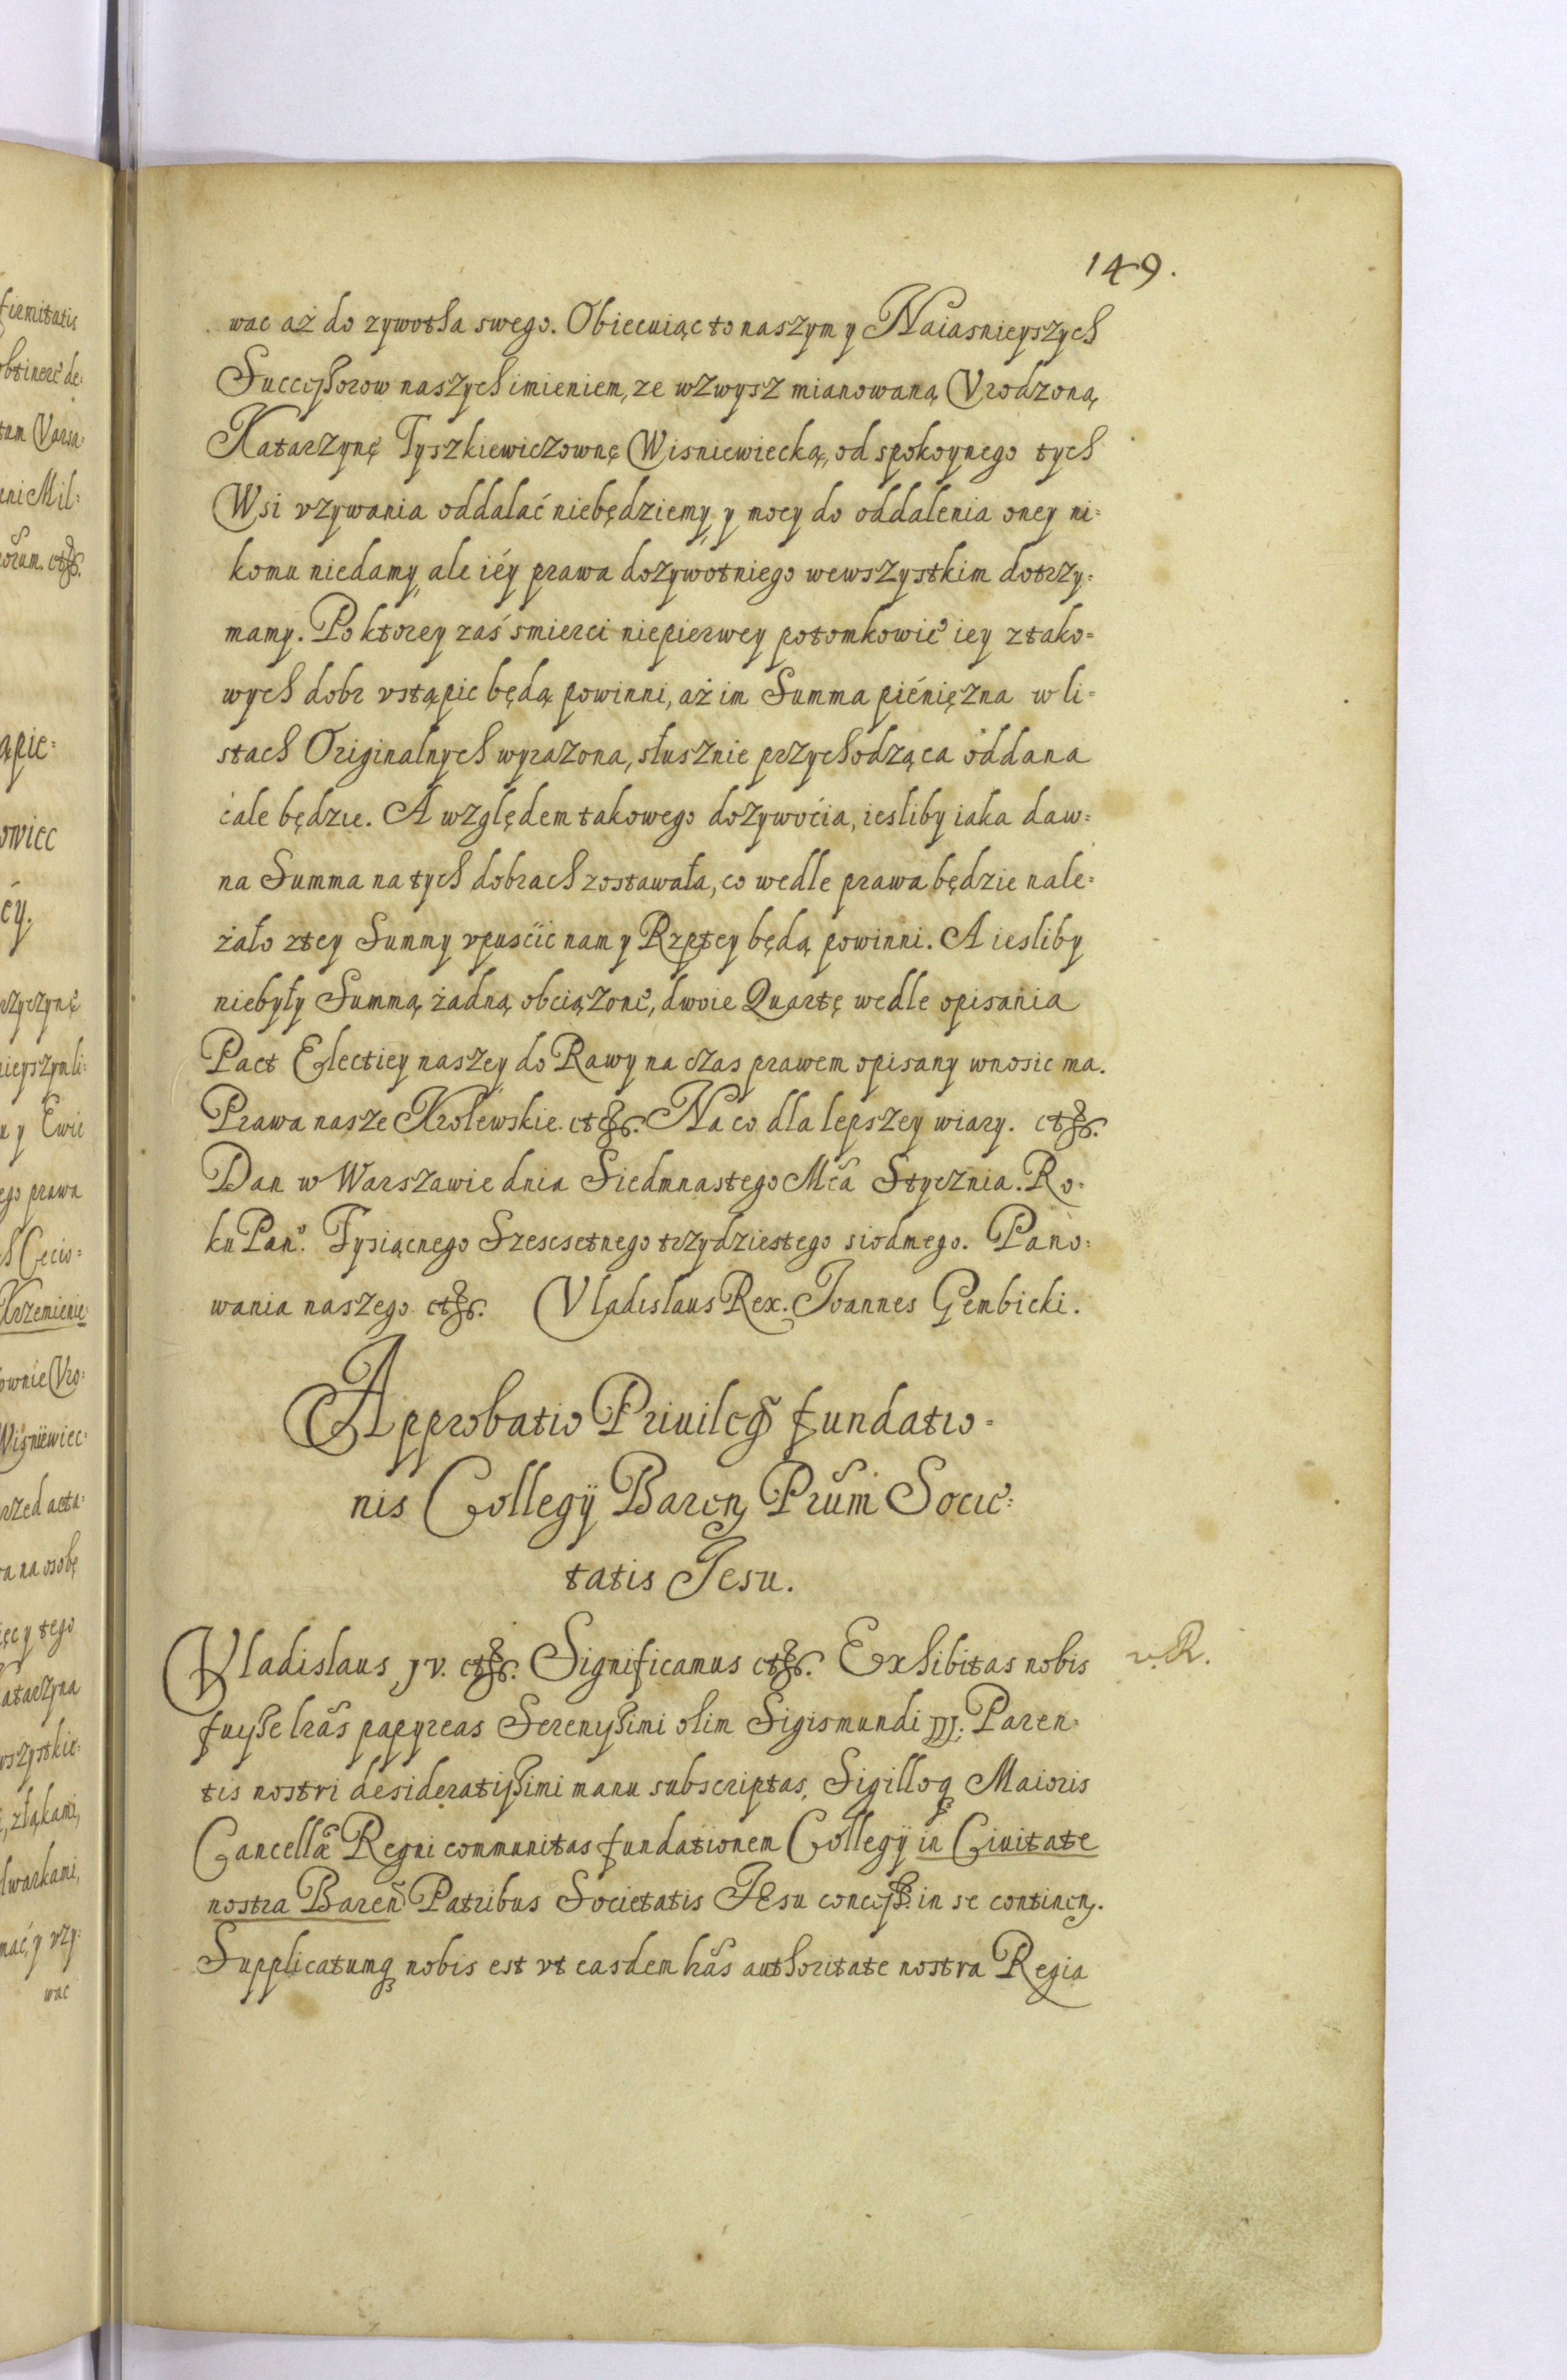 149.
wac aż do zywotha swego. Obiecuiąc to naszym y Naiasnieyszych
Successorow naszych imieniem, ze wzwysz mianowaną Vrodzoną
Katarzynę Tyszkiewiczownę Wisniewiecką, od spokoynego tych
Wsi vzywania oddalać niebędziemy, y mocy do oddalenia oney ni=
komu niedamy, ale iéy prawa dozywotniego wewszystkim dotrzy=
mamy. Po ktorey zaś smierci niepierwey potomkowie iey ztako=
wych dobr vstąpic będą powinni, aż im Summa piéniężna w li=
stach Originalnych wyrazona, słusznie przychodząca oddana
cale będzie. A względem takowego dozywocia, iesliby iaka daw=
na Summa na tych dobrach zostawała, co wedle prawa będzie nale=
żało ztey Summy vpuścić nam y Rzptey będą powinni. A iesliby
niebyły Summą żadną obciązone, dwoie Quartę wedle opisania
Pact Electiey naszey do Rawy na czas prawem opisany wnosic ma.
Prawa nasze Krolewskie. etc. Na co dla lepszey wiary. etc.
Dan w Warszawie dnia Siedmnastego Mca Stycznia. Ro=
ku Pań. Tysiącnego Szescsetnego trzydziestego siodmego. Pano=
wania naszego etc. Vladislaus Rex. Joannes Gembicki.
Approbatio Priuileg fundatio=
nis Collegÿ Baren Prum Socie=
tatis Jesu.
Vladislaus JV. etc. Significamus etc. Exhibitas nobis v.R.
fuisse lras papyreas Serenissimi olim Sigismundi III. Paren=
tis nostri desideratissimi manu subscriptas, Sigilloq Maioris
Cancellæ Regni communitas fundationem Collegÿ in Ciuitate
nostra Bareñ Patribus Societatis JEsu concess. in se continen.
Supplicatumq nobis est vt easdem lras authoritate nostra Regia
firmitatis
obtinere de=
tum Varsa=
ani Mil=
orum. etc.
ąpie=
owiec
éy.
nieyszym li=
u y Ewie
ego prawa
Krzemienie
ownie Vro=
Wiśniewiec=
rzed acta=
ra na osobę
ięc y tego
atarzyna
wszystkie=
i, złąkami,
lwarkami,
mać, y vzy=
wac